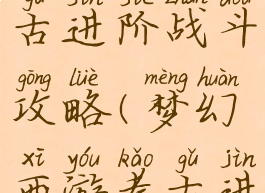 gǔ jìn jiē zhàn dòu
古进阶战斗
gōng lüè mèng huàn
攻略(梦幻
xī yóu kǎo gǔ jìn
西游考古进